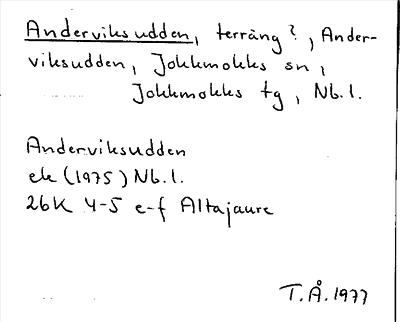 Anderviksudden, terräng?, Ander-
viksudden, Jokkmokks sn,
Jokkmokks tg, Nb.l.
Anderviksudden
ek (1975) Nb.l.
26K 4-5 e-f Altajaure
T.Å. 1977